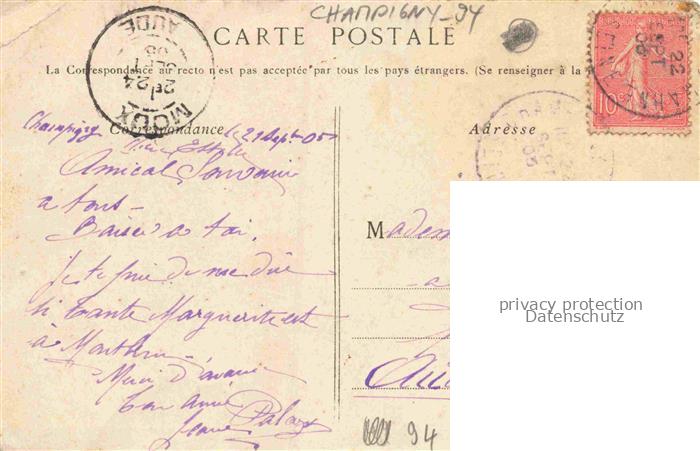 CHAMPIGNY-94
CARTE POSTALE
La Correspondance au recto n'est pas acceptée par tous les pays étrangers. (Se renseigner à la
MOUX
AUDE
24
SEPT
05
22
SEPT
05
10
Correspondance
Adresse
Champigny le 21 Sept. 05
Amical Souvenir
a tous -
Baiser à toi.
Je te prie de me dire
si tante Marguerite est
à
Merci d'avance
Ton ami
Jeanne
Madem
privacy protection
Datenschutz
94